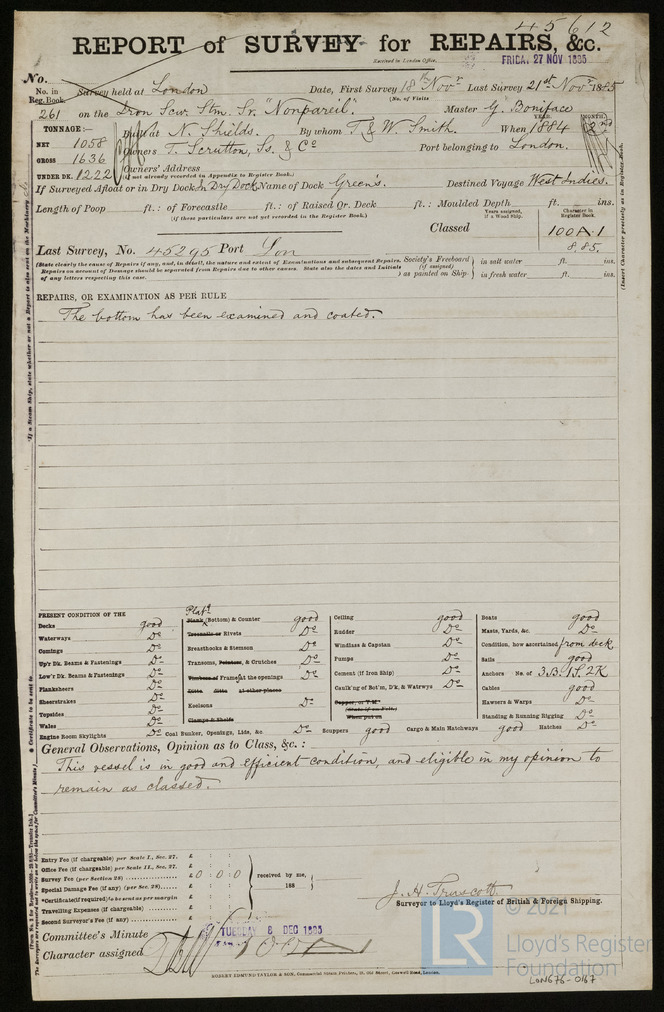 45612
REPORT of SURVEY for REPAIRS, &c.
Received in London Office, FRIDA. 27 NOV 1885
No.
No. in Reg. Book. Survey held at London Date, First Survey 18th Novr Last Survey 21st Novr 1885
(No. of Visits
261 on the Iron Scw. Stm. Sr. "Nonpareil". Master G. Boniface
TONNAGE:— Built at N. Shields. By whom T. & W. Smith. When 1884 YEAR. MONTH. 2nd
NET 1058
GROSS 1636 Owners T. Scrutton, Ss. & Co Port belonging to London.
UNDER DK. 1222 Owners' Address
(if not already recorded in Appendix to Register Book.)
If Surveyed Afloat or in Dry Dock In Dry Dock Name of Dock Green's. Destined Voyage West Indies.
Length of Poop ft.: of Forecastle ft.: of Raised Qr. Deck ft.: Moulded Depth ft. ins.
(if these particulars are not yet recorded in the Register Book.)
Years assigned, if a Wood Ship. Character in Register Book.
Classed 100A.1
8.85.
Last Survey, No. 45295 Port Lon
(State clearly the cause of Repairs if any, and, in detail, the nature and extent of Examinations and subsequent Repairs. Society's Freeboard in salt water ft. ins.
Repairs on account of Damage should be separated from Repairs due to other causes. State also the dates and Initials (if assigned)
of any letters respecting this case. as painted on Ship in fresh water ft. ins.
REPAIRS, OR EXAMINATION AS PER RULE
The bottom has been examined and coated.
PRESENT CONDITION OF THE
Decks good
Waterways Do
Comings Do
Up'r Dk. Beams & Fastenings Do
Low'r Dk. Beams & Fastenings Do
Planksheers Do
Sheerstrakes Do
Topsides Do
Wales Do
Engine Room Skylights Do
Platg
Plank (Bottom) & Counter good
Treenails or Rivets Do
Breasthooks & Stemson Do
Transoms, Pointers, & Crutches Do
Timbers of Frame at the openings Do
Ditto Ditto at other places
Keelsons Do
Clamps & Shelfs
Coal Bunker, Openings, Lids, &c. Do
Ceiling good
Rudder Do
Windlass & Capstan Do
Pumps Do
Cement (if Iron Ship) Do
Caulk'ng of Bot'm, D'k, & Waterwys Do
Copper, or Y.M.
(State if on Felt)
When put on
Scuppers good Cargo & Main Hatchways good Hatches Do
Boats good
Masts, Yards, &c. Do
Condition, how ascertained from deck
Sails good
Anchors No. of 3.B. 1S. 2K
Cables good
Hawsers & Warps Do
Standing & Running Rigging Do
General Observations, Opinion as to Class, &c.:
This vessel is in good and efficient condition, and eligible in my opinion to
remain as classed.
Entry Fee (if chargeable) per Scale I., Sec. 27. £ : :
Office Fee (if chargeable) per Scale II., Sec. 27. £ : :
Survey Fee (per Section 28) £ 0 : 0 : 0
Special Damage Fee (if any) (per Sec. 28) £ : :
*Certificate (if required) to be sent as per margin £ : :
Travelling Expenses (if chargeable) £ : :
Second Surveyor's Fee (if any) £ : :
received by me,
188
J. H. Truscott
Surveyor to Lloyd's Register of British & Foreign Shipping.
Committee's Minute TUESDAY 8 DEC 1885
Character assigned 100A1
ROBERT EDMUND TAYLOR & SON, Commercial Steam Printers, 19, Old Street, Goswell Road, London.
© 2021
LR Lloyd's Register
Foundation
LON676-0167
(Insert Character precisely as in Register Book.
If a Steam Ship, state whether or not a Report is also sent on the Machinery